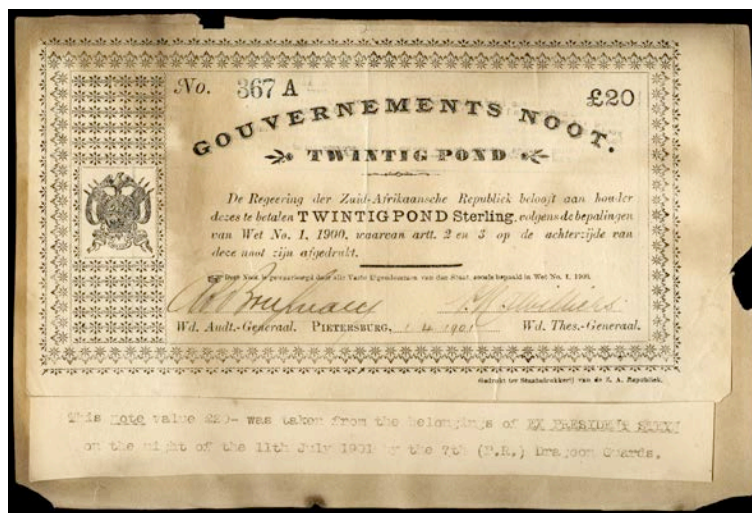 No. 367 A
£20
GOUVERNEMENTS NOOT.
TWINTIG POND
De Regeering der Zuid-Afrikaansche Republiek belooft aan houder
dezes te betalen TWINTIG POND Sterling, volgens de bepalingen
van Wet No. 1, 1900, waarvan artt. 2 en 3 op de achterzijde van
deze noot zijn afgedrukt.
Deze Noot is gewaarborgd door alle Vaste Eigendommen van den Staat, zooals bepaald in Wet No. 1, 1900.
Wd. Audt.-Generaal. PIETERSBURG, 1 4 1901 Wd. Thes.-Generaal.
Gedrukt ter Staatsdrukkerij van de Z. A. Republiek.
This note value £20- was taken from the belongings of EX PRESIDENT STEYN
on the night of the 11th July 1901 by the 7th (P.R.) Dragoon Guards.